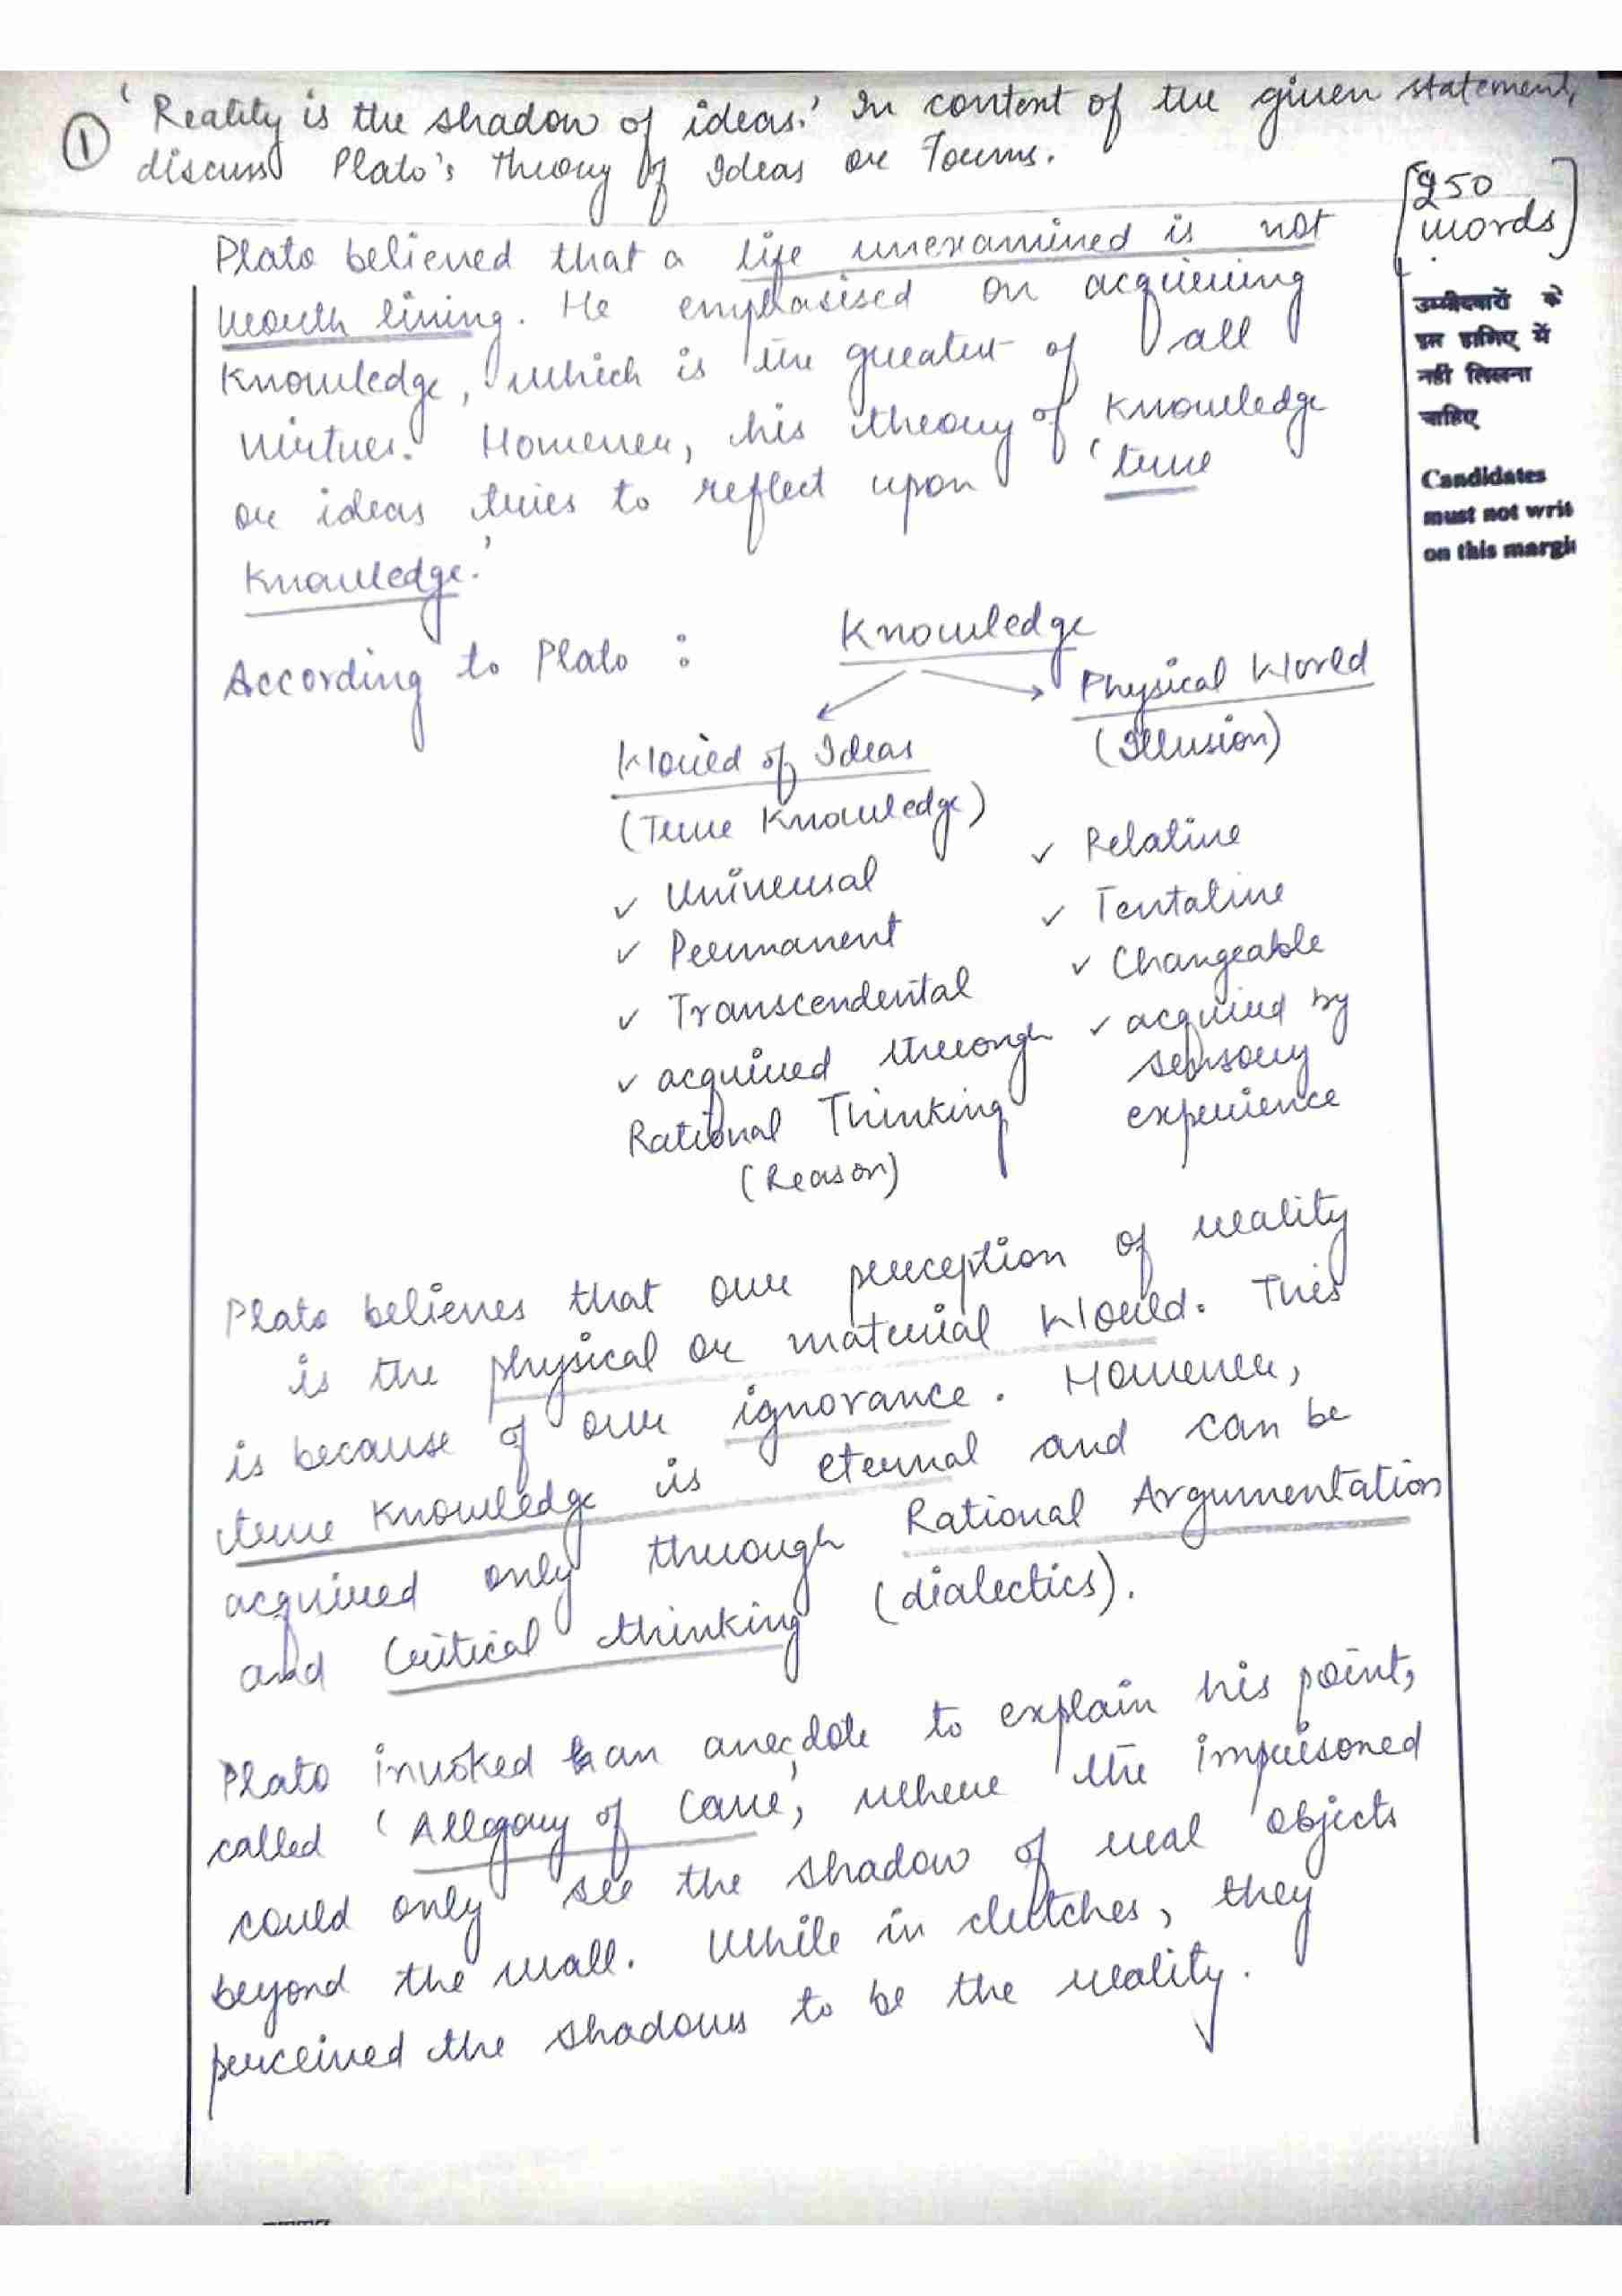 ① 'Reality is the shadow of ideas.' In context of the given statement,
discuss Plato's Theory of Ideas or Forms.
[250
words]
Plato believed that a life unexamined is not
worth living. He emphasised on acquiring
knowledge, which is the greatest of all
virtues. However, his theory of knowledge
or ideas tries to reflect upon 'true
knowledge.'
उम्मीदवारों को
इस हाशिए में
नहीं लिखना
चाहिए
Candidates
must not write
on this margin
According to Plato :
Knowledge
Physical World
(Illusion)
World of Ideas
(True Knowledge)
✓ Universal
✓ Permanent
✓ Transcendental
✓ acquired through
Rational Thinking
(Reason)
✓ Relative
✓ Tentative
✓ Changeable
✓ acquired by
sensory
experience
Plato believes that our perception of reality
is the physical or material world. This
is because of our ignorance. However,
true knowledge is eternal and can be
acquired only through Rational Argumentation
and Critical thinking (dialectics).
Plato invoked an anecdote to explain his point,
called 'Allegory of Cave', where the imprisoned
could only see the shadow of real objects
beyond the wall. While in clutches, they
perceived the shadows to be the reality.